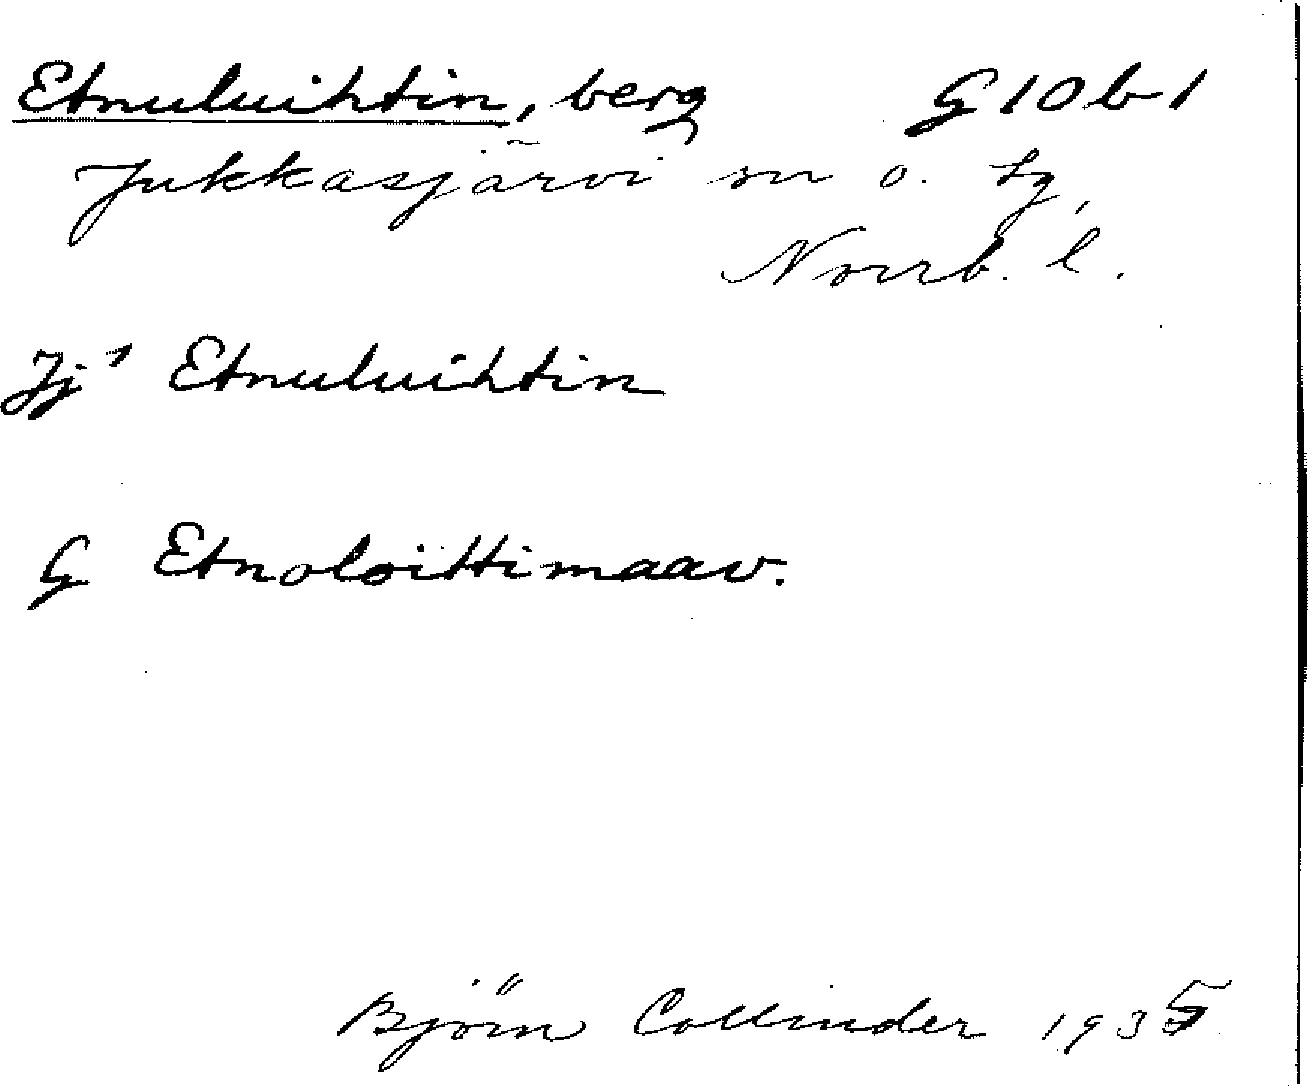 Etnuluihtin, berg G10b1
Jukkasjärvi sn o. tg,
Norrb. l.
Jj¹ Etnuluihtin
G Etnoloittimaav.
Björn Collinder 1935